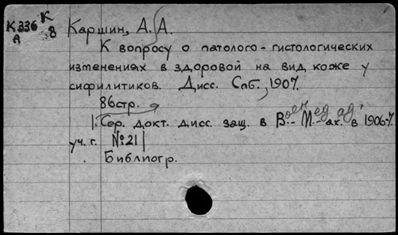 К336 К
А 8
Каршин, А. А.
К вопросу о патолого-гистологических
изменениях в здоровой на вид коже у
сифилитиков. Дисс. Спб., 1907.
86стр.
|Сер. докт. дисс. защ. в Воен Мед ак. в 1906-7
уч. г. №21|
Библиогр.